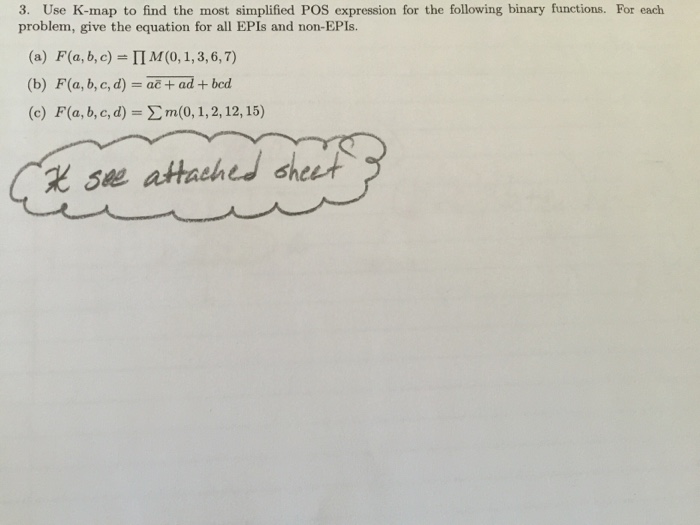 3. Use K-map to find the most simplified POS expression for the following binary functions. For each
problem, give the equation for all EPIs and non-EPIs.
(a) F(a, b, c) = ∏ M(0, 1, 3, 6, 7)
(b) F(a, b, c, d) = \overline{a\bar{c} + ad} + bcd
(c) F(a, b, c, d) = ∑ m(0, 1, 2, 12, 15)
* see attached sheet